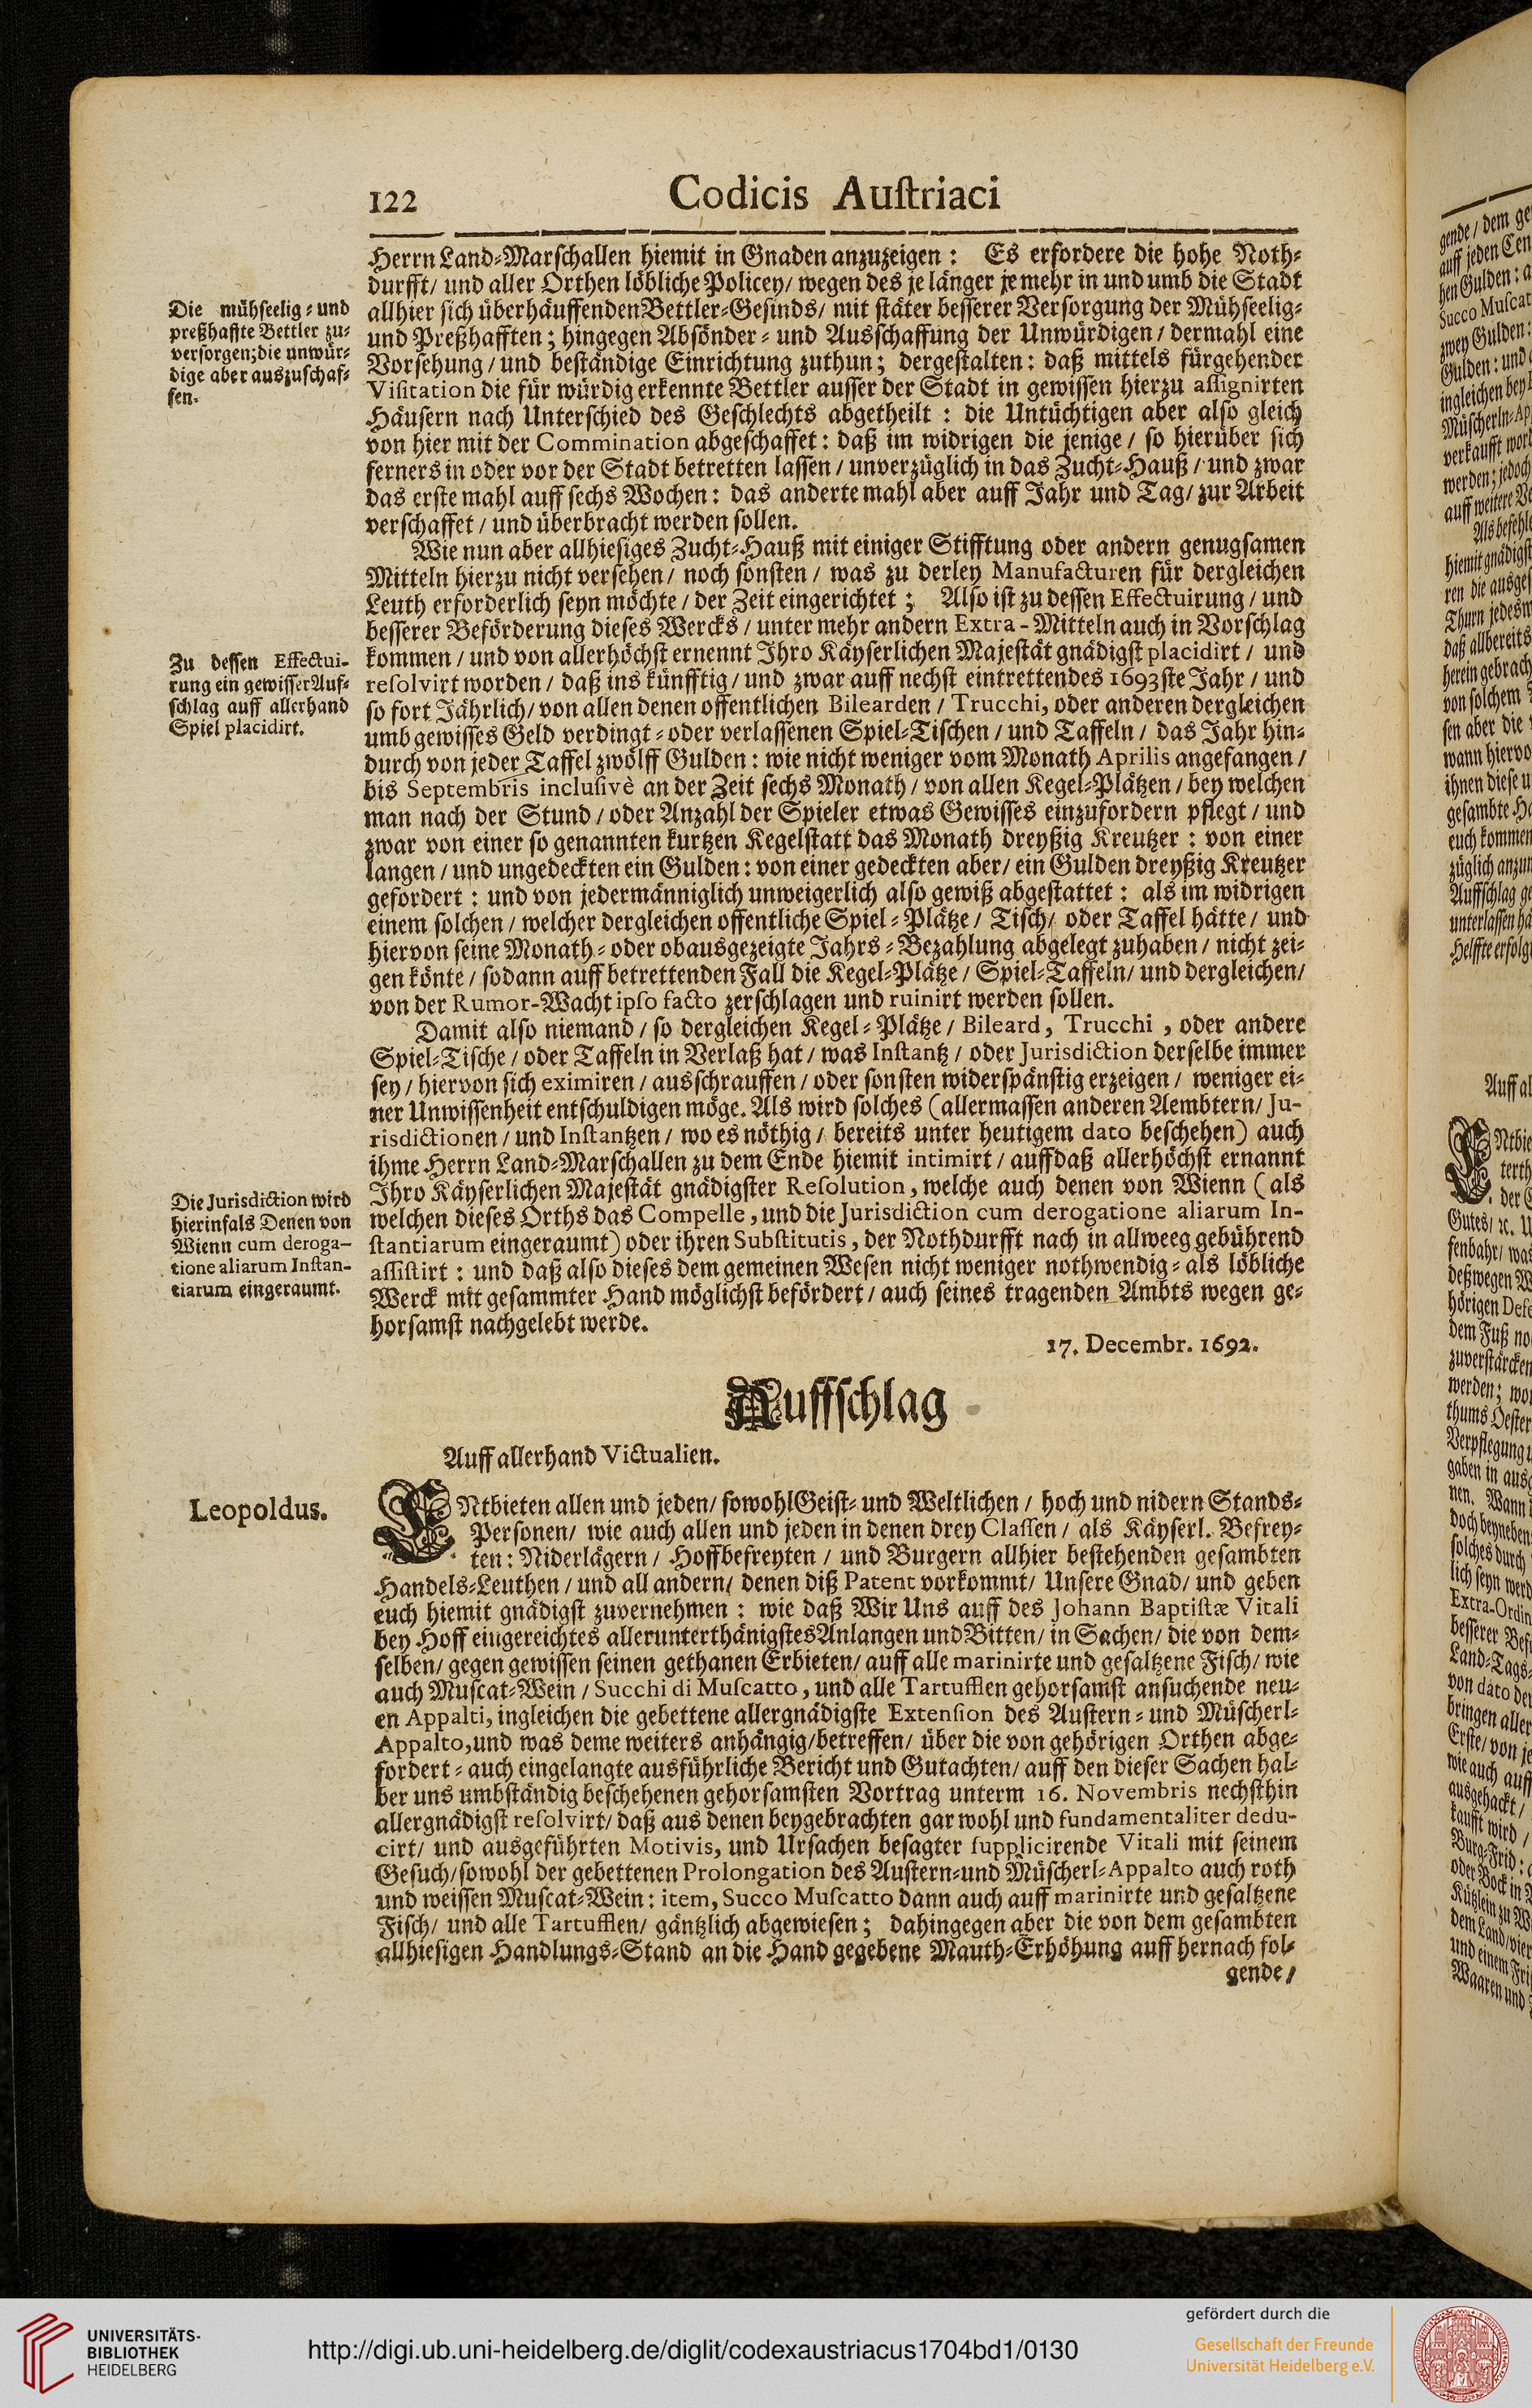 122 Codicis Auſtriaci
Herrn Land-Marſchallen hiemit in Gnaden anzuzeigen : Es erfordere die hohe Noth-
durfft/ und aller Orthen löbliche Policey/ wegen des je länger je mehr in und umb die Stadt
allhier ſich überhäuffenden Bettler-Geſinds/ mit ſtäter beſſerer Verſorgung der Mühſeelig-
und Preßhafften ; hingegen Abſönder- und Ausſchaffung der Unwürdigen / dermahl eine
Vorſehung / und beſtändige Einrichtung zuthun ; dergeſtalten : daß mittels fürgehender
Viſitation die für würdig erkennte Bettler auſſer der Stadt in gewiſſen hierzu aſſignirten
Häuſern nach Unterſchied des Geſchlechts abgetheilt : die Untüchtigen aber alſo gleich
von hier mit der Commination abgeſchaffet : daß im widrigen die jenige / ſo hierüber ſich
ferners in oder vor der Stadt betretten laſſen / unverzüglich in das Zucht-Hauß / und zwar
das erſte mahl auff ſechs Wochen : das anderte mahl aber auff Jahr und Tag/ zur Arbeit
verſchaffet / und überbracht werden ſollen.
Die mühſeelig- und
preßhaffte Bettler zu-
verſorgen; die unwür-
dige aber auszuſchaf-
fen.
Wie nun aber allhieſiges Zucht-Hauß mit einiger Stifftung oder andern genugſamen
Mitteln hierzu nicht verſehen / noch ſonſten / was zu derley Manufacturen für dergleichen
Leuth erforderlich ſeyn möchte / der Zeit eingerichtet ; Alſo iſt zu deſſen Effectuirung / und
beſſerer Beförderung dieſes Wercks / unter mehr andern Extra-Mitteln auch in Vorſchlag
kommen / und von allerhöchſt ernennt Ihro Käyſerlichen Majeſtät gnädigſt placidirt / und
reſolvirt worden / daß ins künfftig / und zwar auff nechſt eintrettendes 1693ſte Jahr / und
ſo fort Jährlich/ von allen denen offentlichen Bilearden / Trucchi, oder anderen dergleichen
umb gewiſſes Geld verdingt- oder verlaſſenen Spiel-Tiſchen / und Taffeln / das Jahr hin-
durch von jeder Taffel zwölff Gulden : wie nicht weniger vom Monath Aprilis angefangen /
bis Septembris incluſivè an der Zeit ſechs Monath / von allen Kegel-Plätzen / bey welchen
man nach der Stund / oder Anzahl der Spieler etwas Gewiſſes einzufordern pflegt / und
zwar von einer ſo genannten kurtzen Kegelſtatt das Monath dreyßig Kreutzer : von einer
langen / und ungedeckten ein Gulden : von einer gedeckten aber/ ein Gulden dreyßig Kreutzer
gefordert : und von jedermänniglich unweigerlich alſo gewiß abgeſtattet : als im widrigen
einem ſolchen / welcher dergleichen offentliche Spiel-Plätze / Tiſch/ oder Taffel hätte / und
hiervon ſeine Monath- oder obausgezeigte Jahrs-Bezahlung abgelegt zuhaben / nicht zei-
gen könte / ſodann auff betrettenden Fall die Kegel-Plätze / Spiel-Taffeln/ und dergleichen/
von der Rumor-Wacht ipſo facto zerſchlagen und ruinirt werden ſollen.
Zu deſſen Effectui-
rung ein gewiſſer Auf-
ſchlag auff allerhand
Spiel placidirt.
Damit alſo niemand / ſo dergleichen Kegel-Plätze / Bileard, Trucchi , oder andere
Spiel-Tiſche / oder Taffeln in Verlaß hat / was Inſtantz / oder Jurisdiction derſelbe immer
ſey / hiervon ſich eximiren / ausſchrauffen / oder ſonſten widerſpänſtig erzeigen / weniger ei-
ner Unwiſſenheit entſchuldigen möge. Als wird ſolches (allermaſſen anderen Aembtern/ Ju-
risdictionen / und Inſtantzen / wo es nöthig / bereits unter heutigem dato beſchehen) auch
ihme Herrn Land-Marſchallen zu dem Ende hiemit intimirt / auffdaß allerhöchſt ernannt
Ihro Käyſerlichen Majeſtät gnädigſter Reſolution, welche auch denen von Wienn (als
welchen dieſes Orths das Compelle, und die Jurisdiction cum derogatione aliarum In-
ſtantiarum eingeraumt) oder ihren Subſtitutis, der Nothdurfft nach in allweeg gebührend
aſſiſtirt : und daß alſo dieſes dem gemeinen Weſen nicht weniger nothwendig- als löbliche
Werck mit geſammter Hand möglichſt befördert / auch ſeines tragenden Ambts wegen ge-
horſamſt nachgelebt werde.
Die Jurisdiction wird
hierinfals Denen von
Wienn cum deroga-
tione aliarum Inſtan-
tiarum eingeraumt.
17. Decembr. 1692.
Auffſchlag
Auff allerhand Victualien.
Leopoldus.
ENtbieten allen und jeden/ ſowohl Geiſt- und Weltlichen / hoch und nidern Stands-
Perſonen/ wie auch allen und jeden in denen drey Claſſen / als Käyſerl. Befrey-
ten : Niderlägern / Hoffbefreyten / und Burgern allhier beſtehenden geſambten
Handels-Leuthen / und all andern/ denen diß Patent vorkommt/ Unſere Gnad/ und geben
euch hiemit gnädigſt zuvernehmen : wie daß Wir Uns auff des Johann Baptiſtæ Vitali
bey Hoff eingereichtes allerunterthänigſtes Anlangen und Bitten/ in Sachen/ die von dem-
ſelben/ gegen gewiſſen ſeinen gethanen Erbieten/ auff alle marinirte und geſaltzene Fiſch/ wie
auch Muſcat-Wein / Succhi di Muſcatto, und alle Tartufflen gehorſamſt anſuchende neu-
en Appalti, ingleichen die gebettene allergnädigſte Extenſion des Auſtern- und Müſcherl-
Appalto, und was deme weiters anhängig/ betreffen/ über die von gehörigen Orthen abge-
fordert- auch eingelangte ausführliche Bericht und Gutachten/ auff den dieſer Sachen hal-
ber uns umbſtändig beſchehenen gehorſamſten Vortrag unterm 16. Novembris nechſthin
allergnädigſt reſolvirt/ daß aus denen beygebrachten gar wohl und fundamentaliter dedu-
cirt/ und ausgeführten Motivis, und Urſachen beſagter ſupplicirende Vitali mit ſeinem
Geſuch/ ſowohl der gebettenen Prolongation des Auſtern-und Müſcherl-Appalto auch roth
und weiſſen Muſcat-Wein : item, Succo Muſcatto dann auch auff marinirte und geſaltzene
Fiſch/ und alle Tartufflen/ gäntzlich abgewieſen ; dahingegen aber die von dem geſambten
allhieſigen Handlungs-Stand an die Hand gegebene Mauth-Erhöhung auff hernach fol-
gende /
UNIVERSITÄTS-
BIBLIOTHEK
HEIDELBERG
http://digi.ub.uni-heidelberg.de/diglit/codexaustriacus1704bd1/0130
gefördert durch die
Gesellschaft der Freunde
Universität Heidelberg e.V.